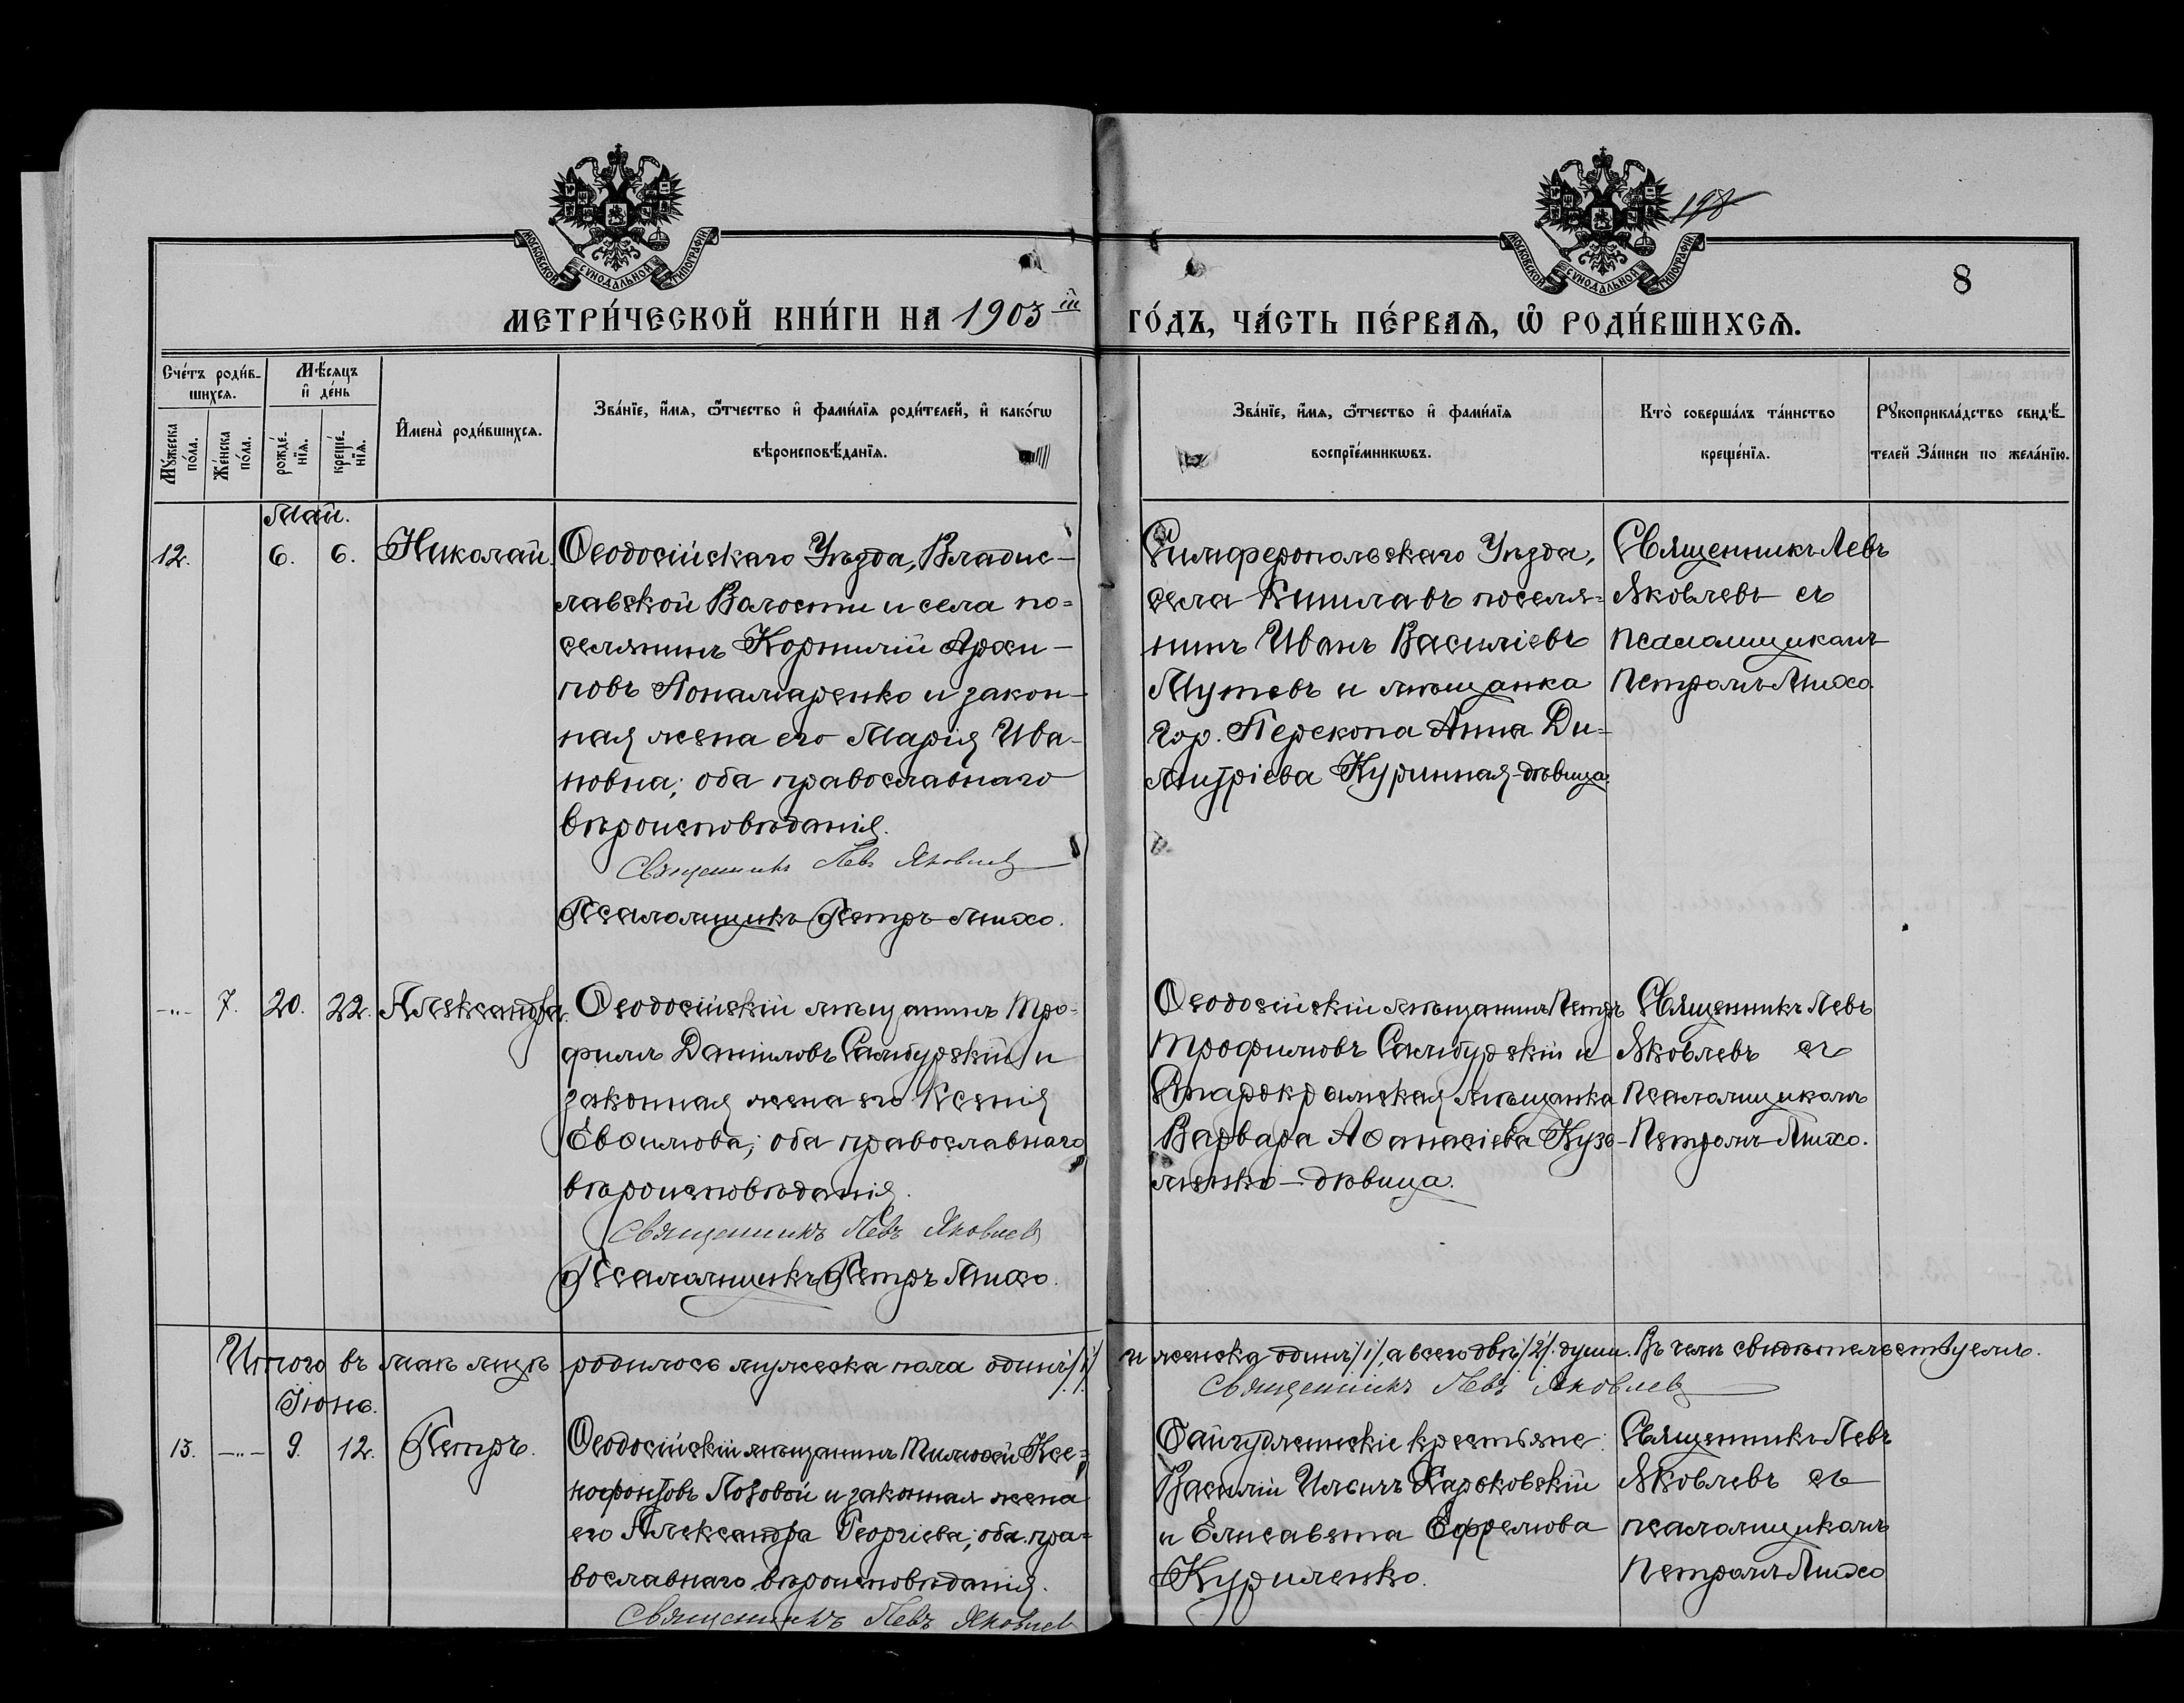 МОСКОВСКОЙ СѴНОДАЛЬНОЙ ТИПОГРАФІИ
МОСКОВСКОЙ СѴНОДАЛЬНОЙ ТИПОГРАФІИ
198
8
МЕТРИ́ЧЕСКОЙ КНИ́ГИ НА 1903 й ГО́ДЪ, ЧА́СТЬ ПЕ́РВАѦ, Ѡ҆ РОДИ́ВШИХСѦ.
Сче́тъ роди́в-
шихсѧ.
Мꙋ́жеска по́ла.
Же́нска по́ла.
Мѣ́сяцъ
и҆ де́нь
рожде́-
нїѧ.
креще́-
нїѧ.
И҆мена̀ роди́вшихсѧ.
Зва́нїе, и҆́мѧ, ѻ҆́тчество и҆ фами́лїѧ роди́телей, и҆ како́гѡ
вѣроисповѣ́данїѧ.
Зва́нїе, и҆́мѧ, ѻ҆́тчество и҆ фами́лїѧ
воспрїе́мникѡвъ.
Кто̀ соверша́лъ та́инство
креще́нїѧ.
Рꙋкоприкла́дство свидѣ́-
телей За́писи по жела́нїю.
Май.
12.
6.
6.
Николай.
Ѳеодосійскаго Уѣзда, Владис-
лавской Волости и села по-
селянинъ Корнилій Архи-
повъ Понамаренко и закон-
ная жена его Марія Ива-
новна; оба православнаго
вѣроисповѣданія.
Священникъ Левъ Яковлевъ
Псаломщикъ Петръ Лихо.
Симферопольскаго Уѣзда,
села Кишлавъ поселя-
нинъ Иванъ Василіевъ
Мутевъ и мѣщанка
гор. Перекопа Анна Ди-
митріева Куринная-дѣвица.
Священникъ Левъ
Яковлевъ съ
псаломщикомъ
Петромъ Лихо.
-"-
7.
20.
22.
Александра.
Ѳеодосійскій мѣщанинъ Тро-
фимъ Даниловъ Самбурскій и
законная жена его Ксенія
Евѳимова; оба православнаго
вѣроисповѣданія.
Священникъ Левъ Яковлевъ
Псаломщикъ Петръ Лихо.
Ѳеодосійскій мѣщанинъ Петръ
Трофимовъ Самбурскій и
Старокрымская мѣщанка
Варвара Аѳанасіева Кузь-
менко-дѣвица.
Священникъ Левъ
Яковлевъ съ
псаломщикомъ
Петромъ Лихо.
Итого въ маѣ мцѣ родилось мужеска пола одинъ /1/ и женска одинъ /1/, а всего двѣ /2/ души. Въ чемъ свидѣтельствуемъ.
Священникъ Левъ Яковлевъ
Іюнь.
13.
-"-
9.
12.
Петръ.
Ѳеодосійскій мѣщанинъ Тимоѳей Ксе-
нофонтовъ Лозовой и законная жена
его Александра Георгіева; оба пра-
вославнаго вѣроисповѣданія.
Священникъ Левъ Яковлевъ
крестьяне:
Василій Ильинъ Харьковскій
и Елисавета Ефремова
Куриленко.
Священникъ Левъ
Яковлевъ съ
псаломщикомъ
Петромъ Лихо